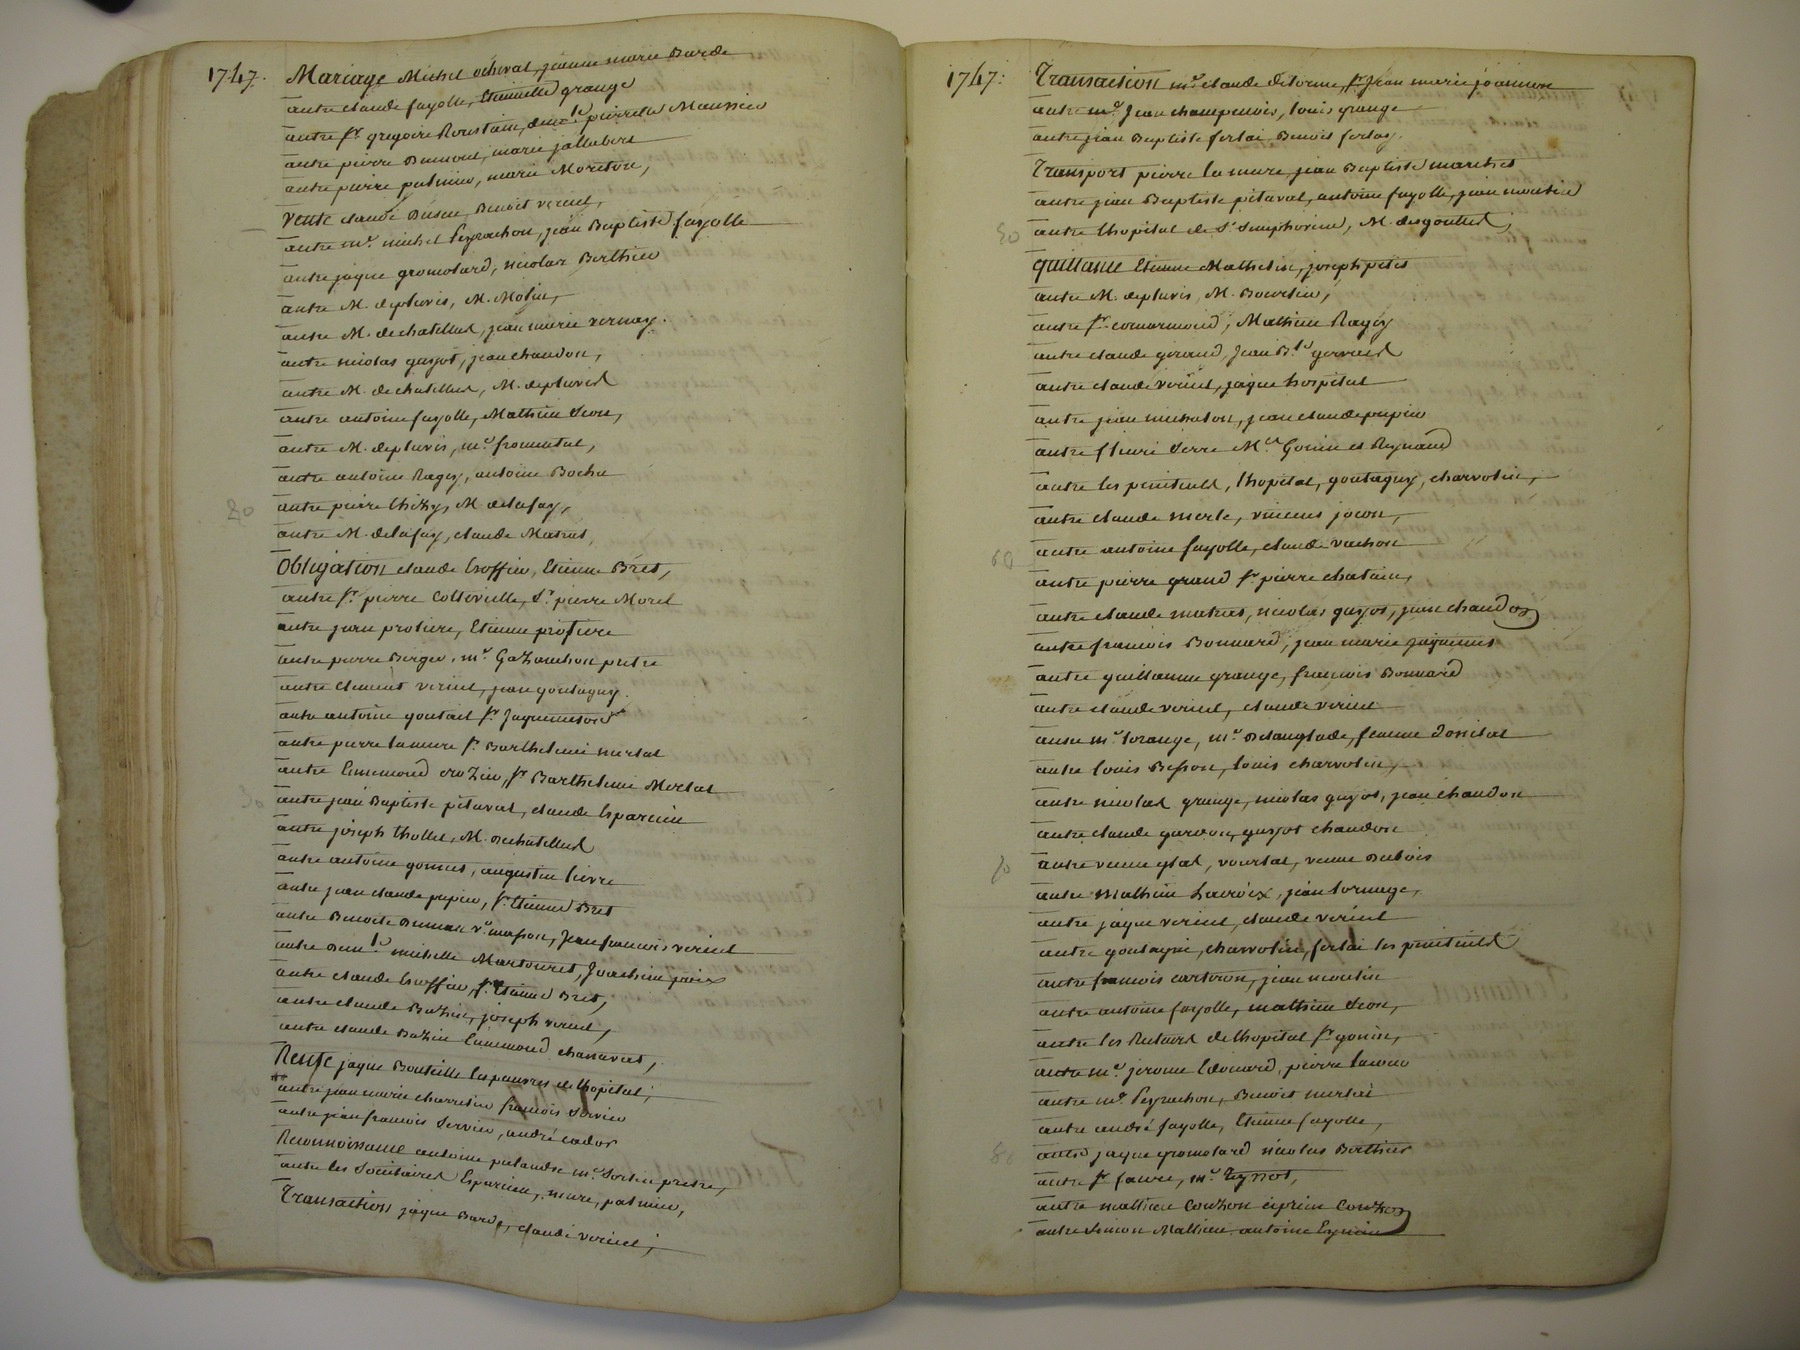 1747.
Mariage Michel ocheval, jeanne marie Barde
autre claude fayolle, Etiennette grange
autre sr gregoire Roustain, demlle pierrette Maussier
autre pierre Bunnout, marie jallabert
autre pierre patissier, marie Moreton,
vente claude Buson, Benoit vericel,
autre me michel Peyrachon, jean Baptiste fayolle
autre jaque gromolard, nicolas Berthier
autre M. depluvis, M. Molin,
autre M. dechatellus, jean marie vernay.
autre nicolas guyot, jean chaudon,
autre M. dechatellus, M. depluvis
autre antoine fayolle, Mathieu Seon,
autre M. depluvis, me fromental,
autre antoine Ragey, antoine Bochu
20 autre pierre thizy, M delafay,
autre M. delafay, claude Matras,
Obligation claude croffier, Etienne Bret,
autre sr pierre Collevielle, Sr pierre Morel
autre jean protiere, Etienne protiere
autre pierre Berger, me Gazanchon pretre
autre clement vericel, jean goutagny.
autre antoine goutail sr Jaquemetord
autre pierre lamure sr Barthelemi merlat
autre Ennemond crozier, sr Barthelemi Merlat
30 autre jean Baptiste pitaval, claude Esparcieu
autre joseph thollet, M. dechatellus
autre antoine gonnet, augustin lievre
autre jean claude pupier, sr Etienne Bret
autre Benoite Dumau ve masson, Jean francois vericel
autre demlle michelle Martouret, Joachim poix
autre claude croffier, sr Etienne Bret,
autre claude Bazin, joseph vericel,
autre claude Bazin Ennemond chanavat,
Rente jaque Bouteille les pauvres de lhopital,
autre jean marie charretier francois Servier
autre jean francois Servier, andré cador
Reconnoissance antoine pulaudre me Sortin pretre,
autre les Societaires Esparcieu, mure, patissier,
Transaction jaque Barde, claude vericel,
1747:
Transaction me claude delorme, sr Jean marie joannon
autre me Jean champenois, louis grange
autre jean Baptiste ferlai Benoit ferlay.
Transport pierre la mure, jean Baptiste maritet
autre jean Baptiste pitaval, antoine fayolle, jean moulin
50 autre lhopital de St Simphorien, M. desgoutes,
quittance Etienne Mathelin, joseph petit
autre M. depluvis, M. Bourlier,
autre sr cornarmond, Mathieu Ragey
autre claude giraud, Jean B.te gervais
autre claude vericel, jaque hospital
autre jean michalon, jean claude pupier
autre fleuri Serre Mes Gonin et Reynaud
autre les penitents, lhopital, goutagny, charvolin,
autre claude merle, vincens jacon,
60 autre antoine fayolle, claude vachon
autre pierre grand sr pierre chatain,
autre claude matras, nicolas guyot, jean chaudon
autre francois Bonnard, jean marie jaquemet
autre guillaume grange, francois Bonnard
autre claude vericel, claude vericel
autre me lorange, me delanglade, femme donitat
autre louis Besson, louis charvolin,
autre nicolas grange, nicolas guyot, jean chaudon
autre claude gardon, guyot chaudon
70 autre veuve glas, vourlat, veuve dubois
autre mathieu Lacroix, jean tornage,
autre jaque vericel, claude vericel
autre goutagni, charvolin, ferlai les penitents
autre francois carteron, jean moulin
autre antoine fayolle, mathieu Seon,
autre les Recteurs de lhopital sr gonin,
autre me jerome Edouard, pierre lacour
autre me Peyrachon, Benoit merlat
autre andré fayolle, Etienne fayolle,
80 autre jaque gromolard nicolas Berthier
autre sr favre, me Teyssot,
autre mathieu Couzon ciprien Couzon
autre Simon Mathieu antoine Eynier